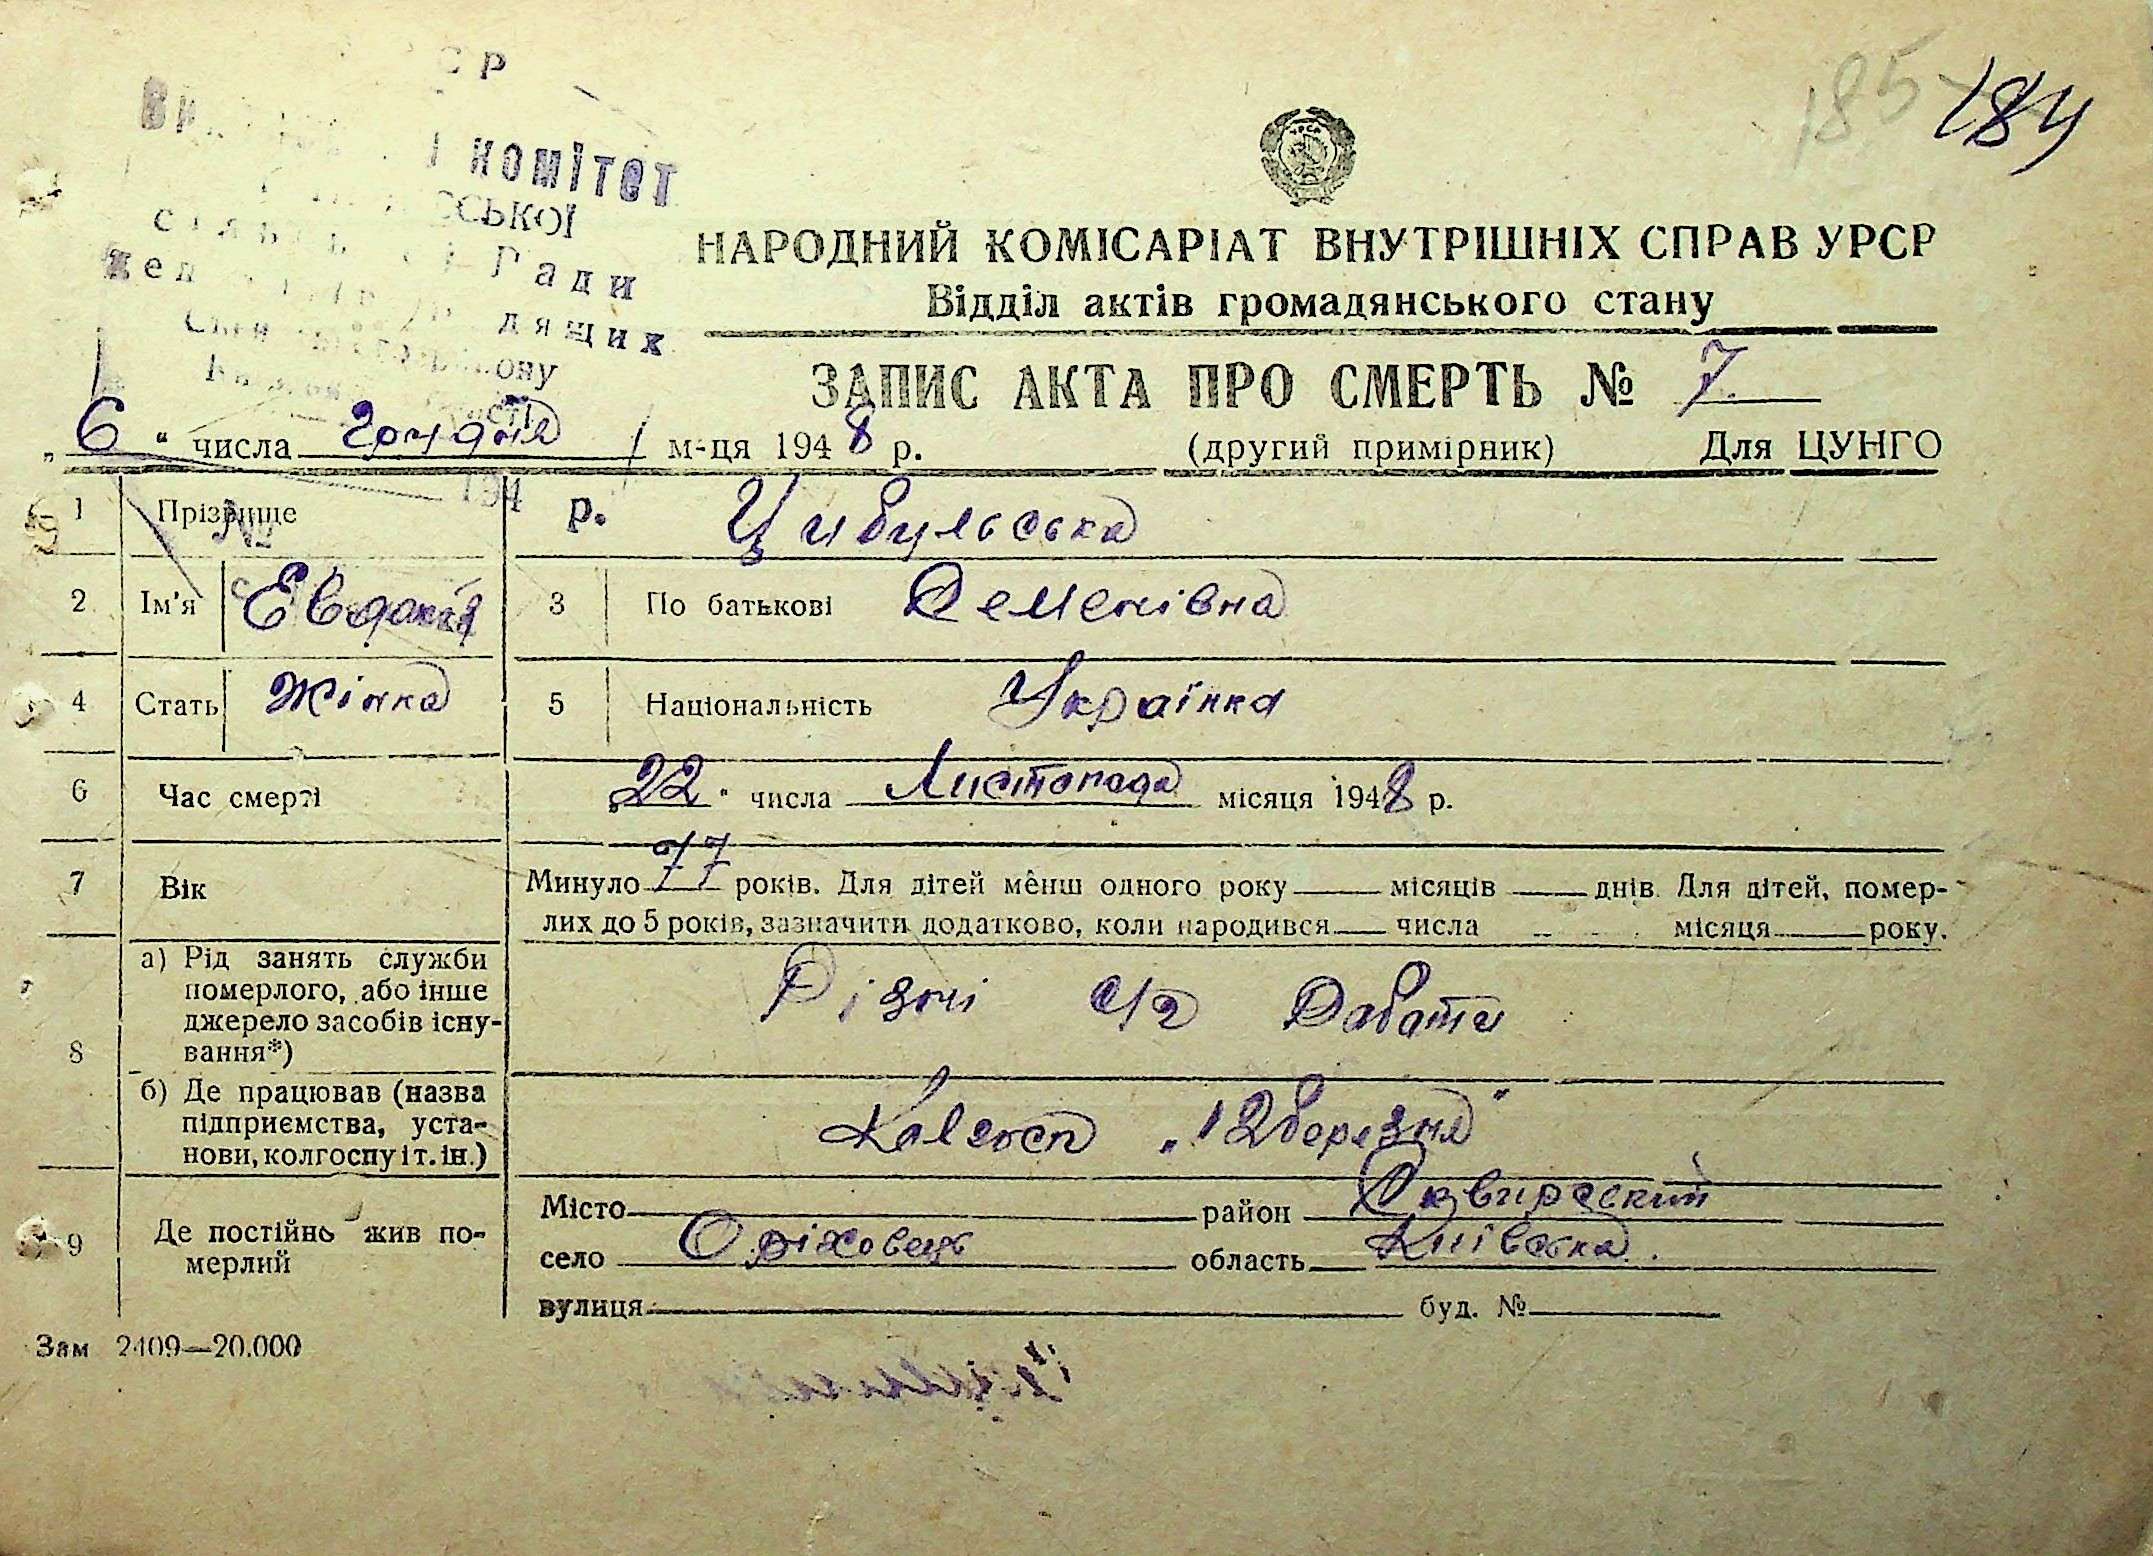 185 184
комітет
Ради
НАРОДНИЙ КОМІСАРІАТ ВНУТРІШНІХ СПРАВ УРСР
Відділ актів громадянського стану
ЗАПИС АКТА ПРО СМЕРТЬ № 7
„6“ числа грудня м-ця 1948 р. (другий примірник) Для ЦУНГО
194 р.
1 Прізвище Цибульська
№
2 Ім'я Евдокія 3 По батькові Семенівна
4 Стать Жінка 5 Національність Українка
6 Час смерті „22“ числа Листопада місяця 1948 р.
7 Вік Минуло 77 років. Для дітей менш одного року місяців днів. Для дітей, помер-
лих до 5 років, зазначити додатково, коли народився числа місяця року.
8 а) Рід занять служби
померлого, або інше
джерело засобів існу-
вання*)
Різні с/г Работи
б) Де працював (назва
підприємства, уста-
нови, колгоспу і т. ін.)
Колгосп „12 березня"
9 Де постійно жив по-
мерлий
Місто район Сквирський
село Оріховець область Київська.
вулиця буд. №
Зам 2409—20.000